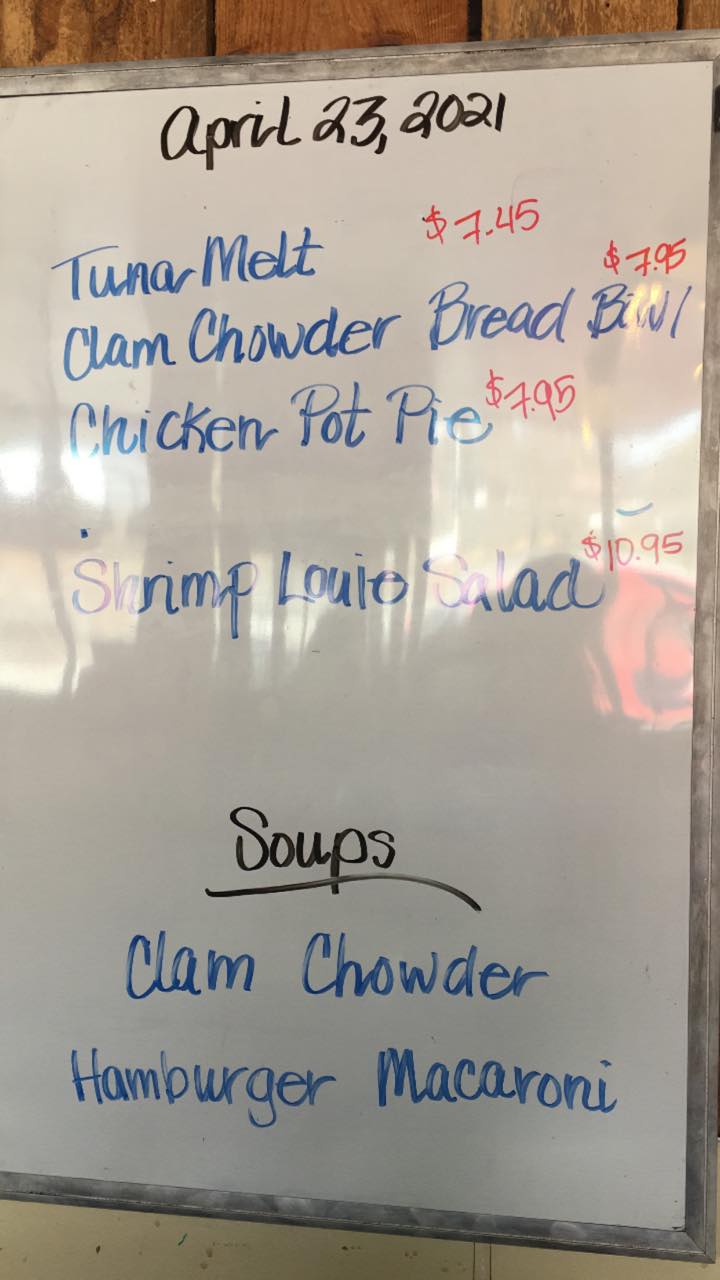 April 23, 2021
Tuna Melt $7.45
Clam Chowder Bread Bowl $7.95
Chicken Pot Pie $7.95
Shrimp Louie Salad $10.95
Soups
Clam Chowder
Hamburger Macaroni